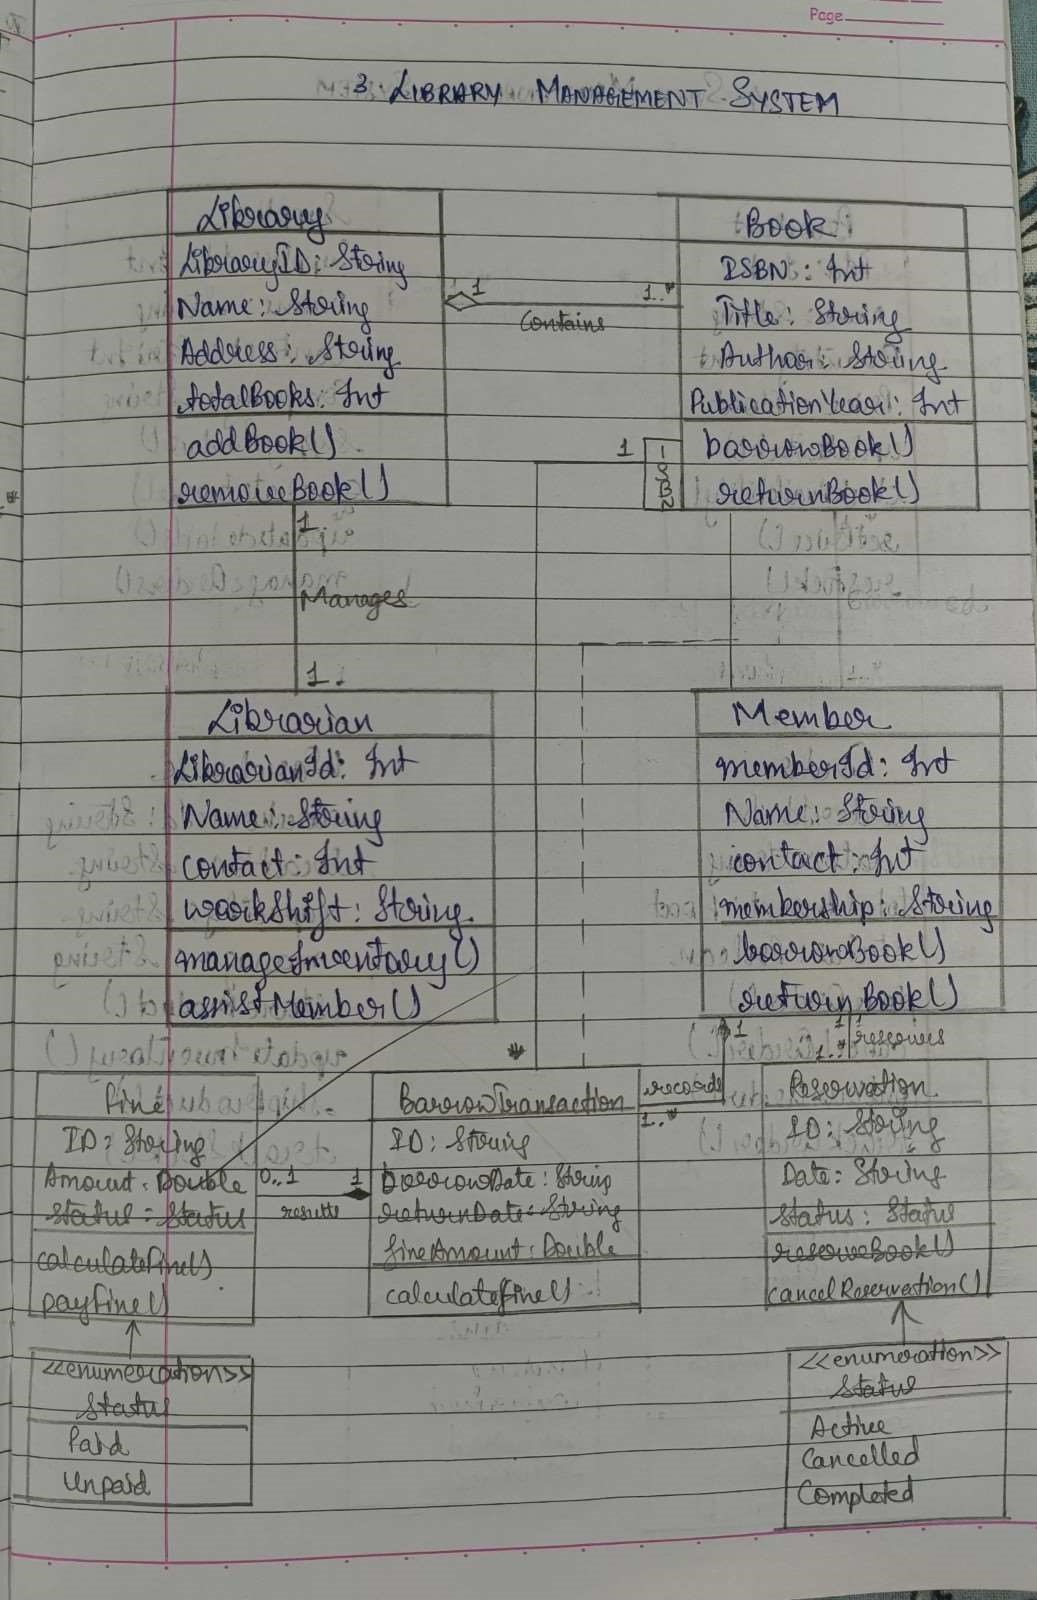 Page
3. LIBRARY MANAGEMENT SYSTEM
Library
LibraryID: String
Name: String
Address: String
totalBooks: Int
addBook()
removeBook()
1
1..*
Contains
Book
ISBN: Int
Title: String
Author: String
PublicationYear: Int
borrowBook()
returnBook()
1
ISBN
1
Manages
1
Librarian
LibrarianId: Int
Name: String
contact: Int
workShift: String
manageInventory()
assistMember()
Member
memberId: Int
Name: String
contact: Int
membership: String
borrowBook()
returnBook()
*
1
records
1..*
1
reserves
1..*
Fine
ID: String
Amount: Double
status: Status
calculateFine()
payFine()
0..1
1
results
BorrowTransaction
ID: String
BorrowDate: String
returnDate: String
fineAmount: Double
calculateFine()
Reservation
ID: String
Date: String
Status: Status
reserveBook()
cancelReservation()
<<enumeration>>
Status
Paid
Unpaid
<<enumeration>>
Status
Active
Cancelled
Completed